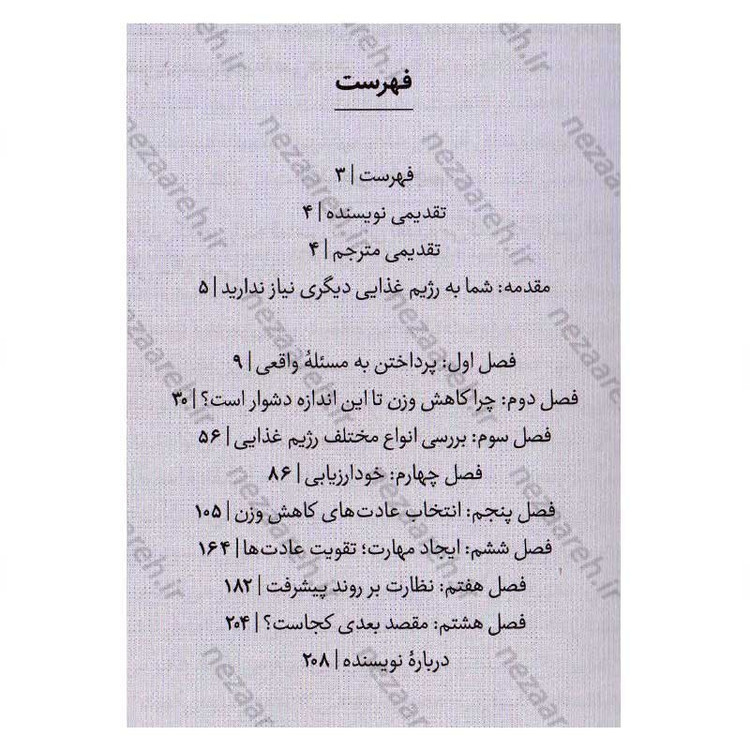 فهرست
فهرست | ۳
تقدیمی نویسنده | ۴
تقدیمی مترجم | ۴
مقدمه: شما به رژیم غذایی دیگری نیاز ندارید | ۵
فصل اول: پرداختن به مسئلهٔ واقعی | ۹
فصل دوم: چرا کاهش وزن تا این اندازه دشوار است؟ | ۳۰
فصل سوم: بررسی انواع مختلف رژیم غذایی | ۵۶
فصل چهارم: خودارزیابی | ۸۶
فصل پنجم: انتخاب عادت‌های کاهش وزن | ۱۰۵
فصل ششم: ایجاد مهارت؛ تقویت عادت‌ها | ۱۶۴
فصل هفتم: نظارت بر روند پیشرفت | ۱۸۲
فصل هشتم: مقصد بعدی کجاست؟ | ۲۰۴
دربارهٔ نویسنده | ۲۰۸
nezaareh.ir